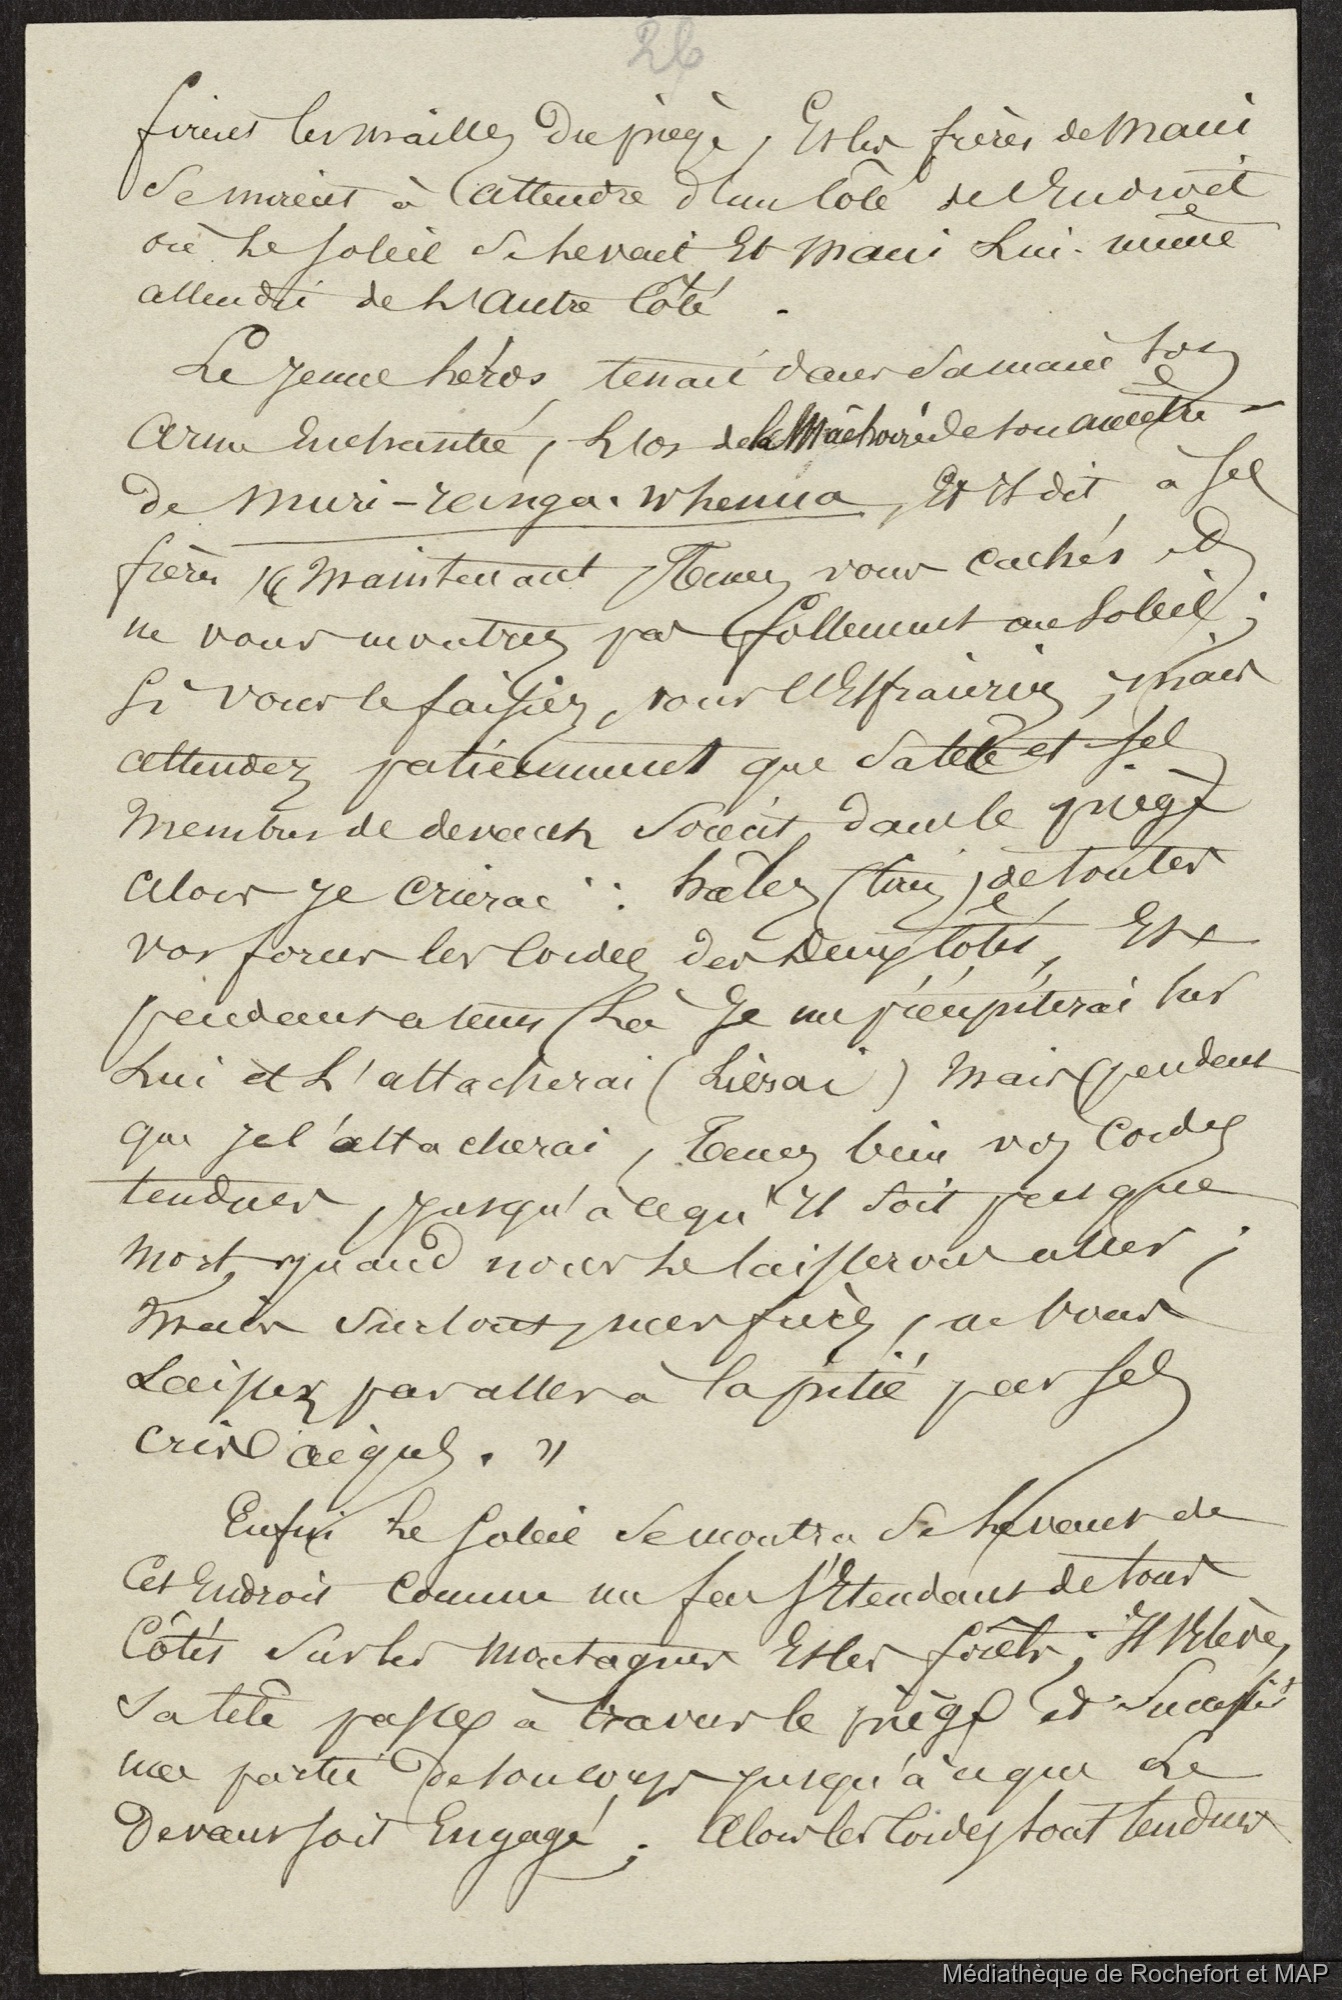 26
firent les mailles du piège, Et les frères de Maui
se mirent à attendre d'un côté de l'Endroit
où le soleil se levait Et Maui Lui-même
attendit de L'autre Côté.
Le jeune héros, tenait dans sa main son
arme Enchantée, L'os de la Mâchoire de son ancêtre -
de Muri-ranga-whenua, Et Il dit à ses
frères « Maintenant Tenez vous cachés et
ne vous montrez pas follement au Soleil;
Si vous le faisiez, vous l'Effrairiez; mais
attendez patiemment que sa tête et ses
Membres de devant soient dans le piège
alors je crierai : hâlez (tirez) de toutes
vos forces les Cordes des deux Côtés, Et
pendant ce temps Là Je me précipiterai sur
Lui et L'attacherai (Lierai) Mais pendant
que je l'attacherai, Tenez bien vos Cordes
tendues, jusqu'à ce qu'Il soit presque
Mort, quand nous le laisserons aller;
Mais surtout, mes frères, ne vous
Laissez pas aller à la pitié par ses
cris aigus. »
Enfin Le Soleil se montra se Levant de
Cet Endroit Comme un feu s'Etendant de tous
Côtés sur les Montagnes Et les forêts; Il s'élève,
sa tête passe à travers le piège et successi
me partie de son corps jusqu'à ce que Le
Devant soit Engagé; alors les Cordes sont tendues
Médiathèque de Rochefort et MAP